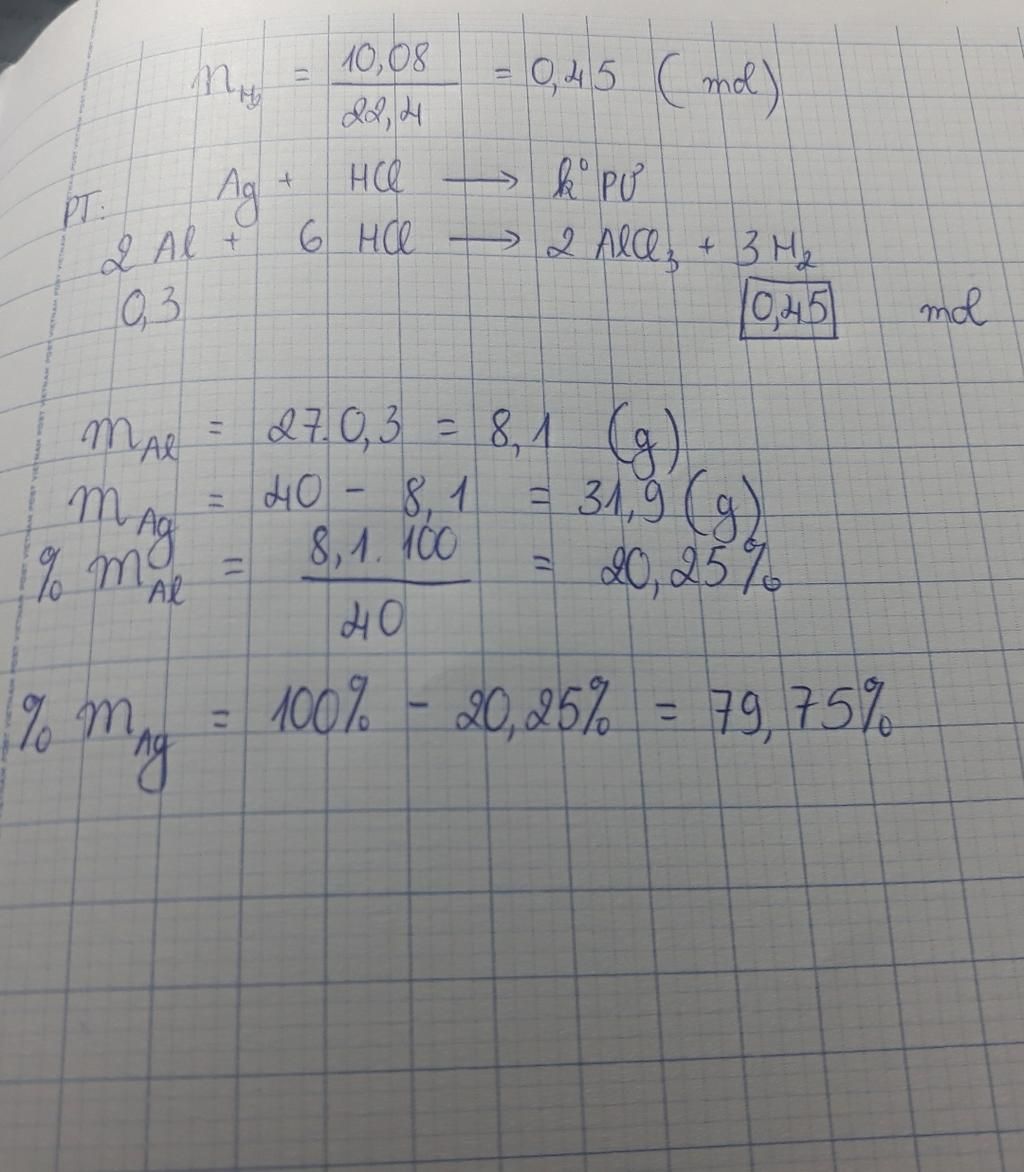 n H₂ = 10,08 / 22,4 = 0,45 (mol)
Ag + HCl → k° PƯ
PT:
2 Al + 6 HCl → 2 AlCl₃ + 3 H₂
0,3 0,45 mol
m Al = 27.0,3 = 8,1 (g)
m Ag = 40 - 8,1 = 31,9 (g)
% m Al = 8,1.100 / 40 = 20,25%
% m Ag = 100% - 20,25% = 79,75%